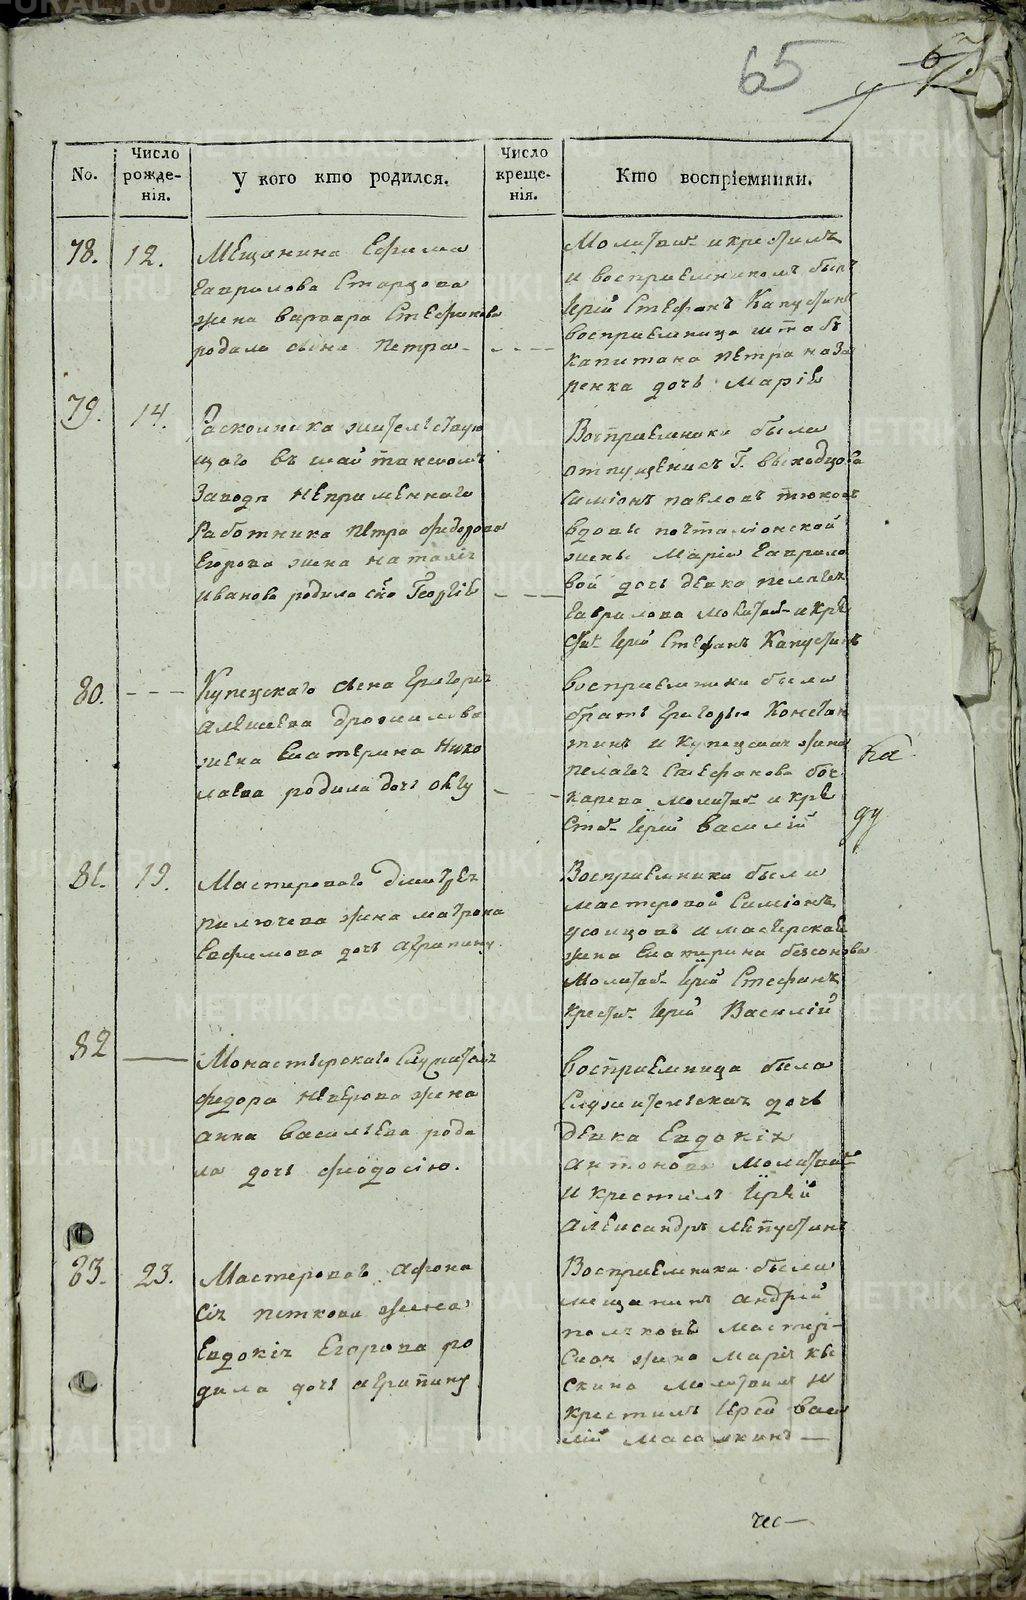 65
No.
Число рожденія.
У кого кто родился.
Число крещенія.
Кто воспріемники.
78.
12.
Мещанина Ефима
Гаврилова Старцова
жена варвара Стефанова
родила сына Петра
Молитвил и крестилъ
и восприемникомъ былъ
Іерей Стефанъ Капустинъ
восприемница штабъ
капитана петра наза
ренка дочь Марія
79.
14.
Раскольника жительствую
щаго въ шайтанскомъ
Заводе непременнаго
Работника петра федорова
Егорова жена наталія
иванова родила сна Георгія
Восприемники были
отпущеникъ Г. выходцова
Симіонъ павловъ
вдовы почталіонской
жены Маріи Гаврило
вой дочь девка пелагея
Гаврилова молитвил и кре
стил Іерей Стефанъ Капустинъ
80.
Купецкаго сына Григорія
алексеева дрозжилова
жена Екатерина Нико
лаева родила дочь
восприемники были
братъ Григорья Констан
тинъ и Купецкая жена
пелагея Стефанова боч
карева молитвил и кре
стил Іерей василій
81.
19.
Мастероваго Димитрея
жена матрона
Евфимова дочь агрипину
Восприемники были
мастеровой Симіонъ
усолцовъ и мастерская
жена Екатерина безсонова
Молитвил Іерей Стефанъ
крестил Іерей Василій
82
Монастырскаго служителя
федора неверова жена
анна васильева роди
ла дочь феодосію.
восприемница была
служительская дочь
девка Евдокія
антонова молитвил
и крестилъ Іерей
александръ лепустинъ
83.
23.
Мастероваго афона
сія петкова жена
Евдокія Егорова ро
дила дочь агрипину
Восприемники были
мещанинъ андрей
полековъ мастер
ская жена Марія кы
скина молитвил и
крестилъ Іерей васи
лій масалкинъ
чес-
METRIKI.GASO-URAL.RU